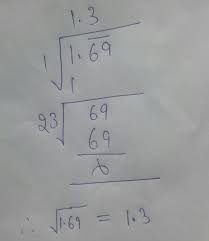 1.3
1 √1.69
1
23 √69
69
0
∴ √1.69 = 1.3